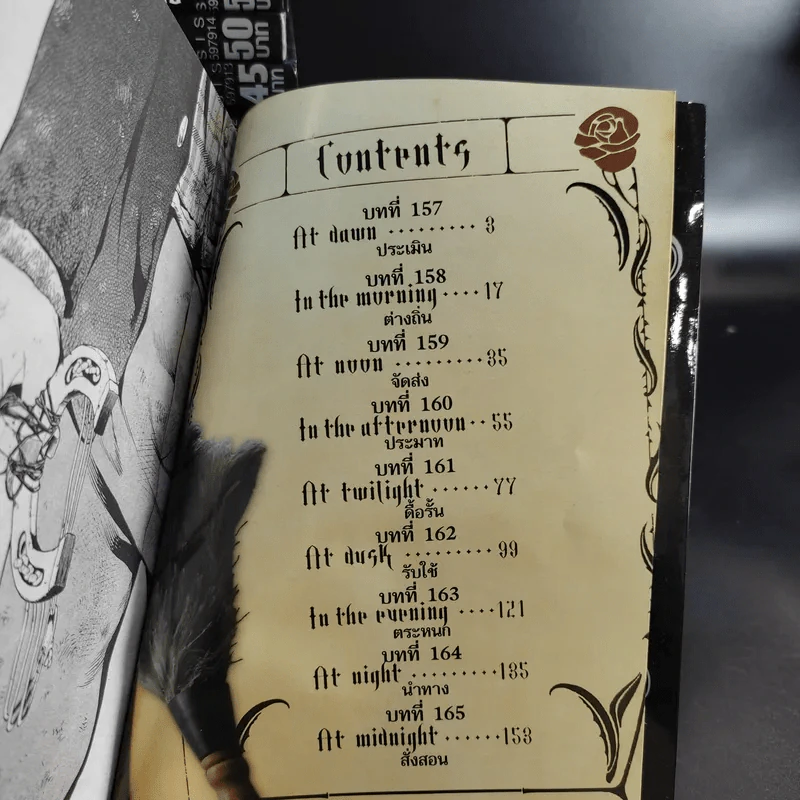 50
บาท
45
บาท
Contents
บทที่ 157
At dawn ········· 3
ประเมิน
บทที่ 158
In the morning ···· 17
ต่างถิ่น
บทที่ 159
At noon ········· 35
จัดส่ง
บทที่ 160
In the afternoon ·· 55
ประมาท
บทที่ 161
At twilight ······ 77
ดื้อรั้น
บทที่ 162
At dusk ········· 99
รับใช้
บทที่ 163
In the evening ···· 121
ตระหนก
บทที่ 164
At night ········· 135
นำทาง
บทที่ 165
At midnight ······ 153
สั่งสอน